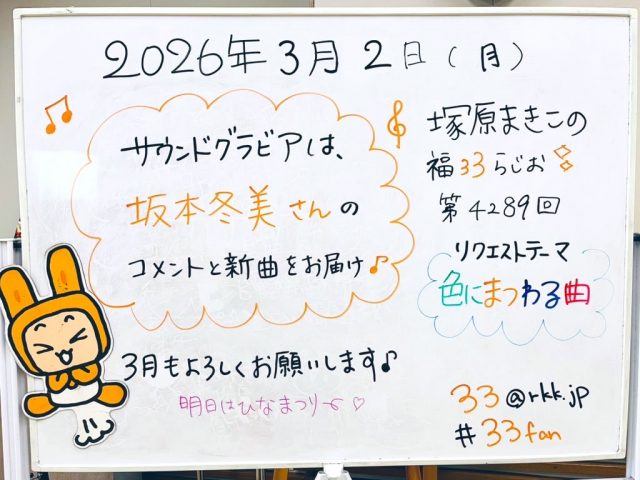 2026年3月2日(月)
サウンドグラビアは、
坂本冬美さんの
コメントと新曲をお届け♪
3月もよろしくお願いします♪
明日はひなまつり〜♡
塚原まきこの
福33らじお
第4289回
リクエストテーマ
色にまつわる曲
33@rkk.jp
#33fan